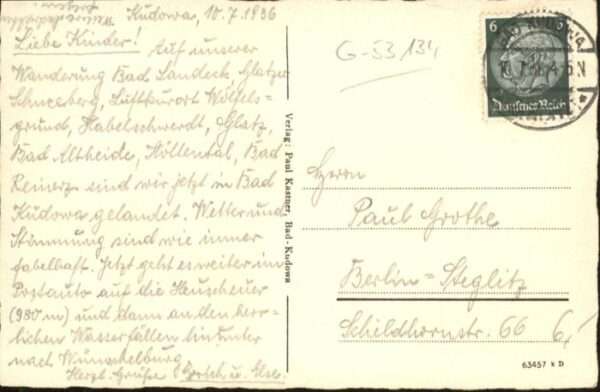 Kudowa, 10.7.1936
Liebe Kinder! Auf unserer
Wanderung Bad Landeck, Glatzer
Schneeberg, Luftkurort Wölfels-
grund, Habelschwerdt, Glatz,
Bad Altheide, Höllental, Bad
Reinerz sind wir jetzt in Bad
Kudowa gelandet. Wetter und
Stimmung sind wie immer
fabelhaft. Jetzt geht es weiter im
Postauto auf die Heuscheuer
(980 m) und dann an den herr-
lichen Wasserfällen hinunter
nach Wünschelburg.
Herzl. Grüße u. Else.
Verlag: Paul Kastner, Bad-Kudowa
G-53134
6
Deutsches Reich
BAD KUDOWA
Herrn
Paul Grothe
Berlin-Steglitz
Schildhornstr. 66
6,-
63457 x D